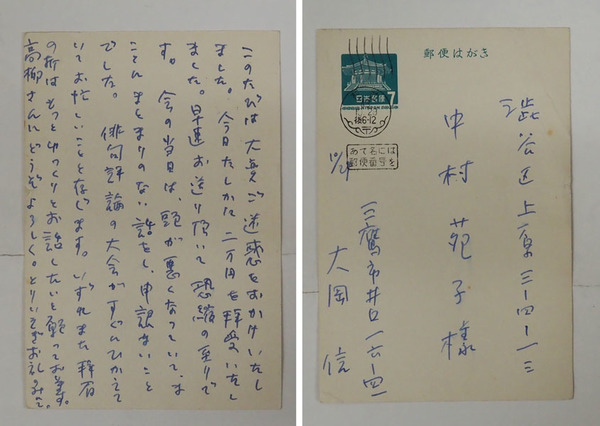 このたびは大変ご迷惑をおかけいたし
ました。今日たしかに二万円を拝受いたし
ました。早速お送り頂いて恐縮の至りで
す。会の当日は、頭が悪くなっていて、ま
ことにまとまりのない話をし、申訳ないこと
でした。俳句評論の大会がすぐにひかえて
いてお忙しいことと存じます。いずれまた拝眉
の折はもっとゆっくりとお話したいと願っております。
高柳さんにどうぞよろしく。とりいそぎお礼のみにて。
郵便はがき
日本郵便
7
后6-12
あて名には
郵便番号を
渋谷区上原三ー四ー一三
中村苑子様
三鷹市井口一六ー四
大岡信